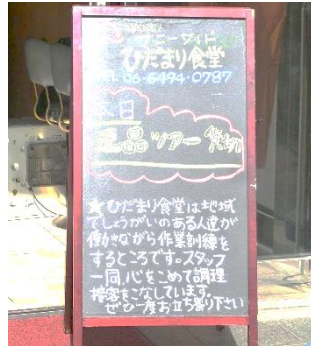 サニーサイド
ひだまり食堂
TEL 06-6494-0787
本日
ツアー
★ひだまり食堂は地域
でしょうがいのある人達が
働きながら作業訓練を
するところです。スタッフ
一同、心をこめて調理
接客をこなしています。
ぜひ一度お立ち寄り下さい